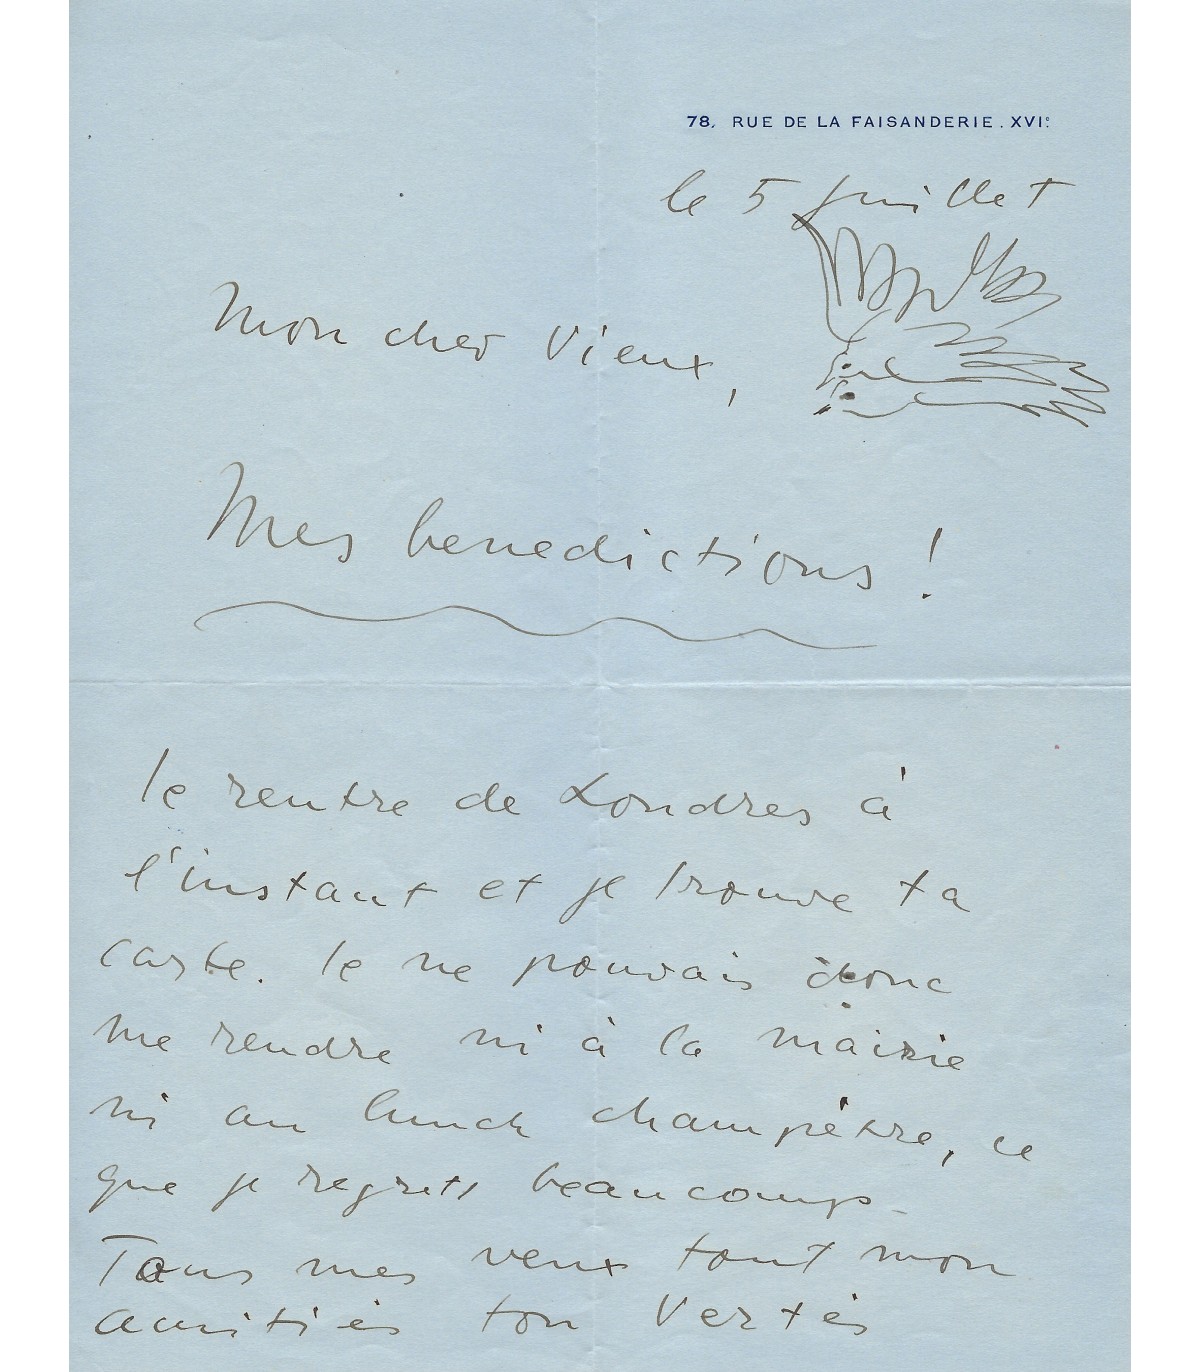 78, RUE DE LA FAISANDERIE. XVIe.
le 5 juillet
Mon cher Vieux,
Mes benedictions !
Je rentre de Londres à
l'instant et je trouve ta
carte. Je ne pouvais donc
me rendre ni à la mairie
ni au lunch champètre, ce
que je regrets beaucoup_
Tous mes veux tout mon
amitiés ton Vertès